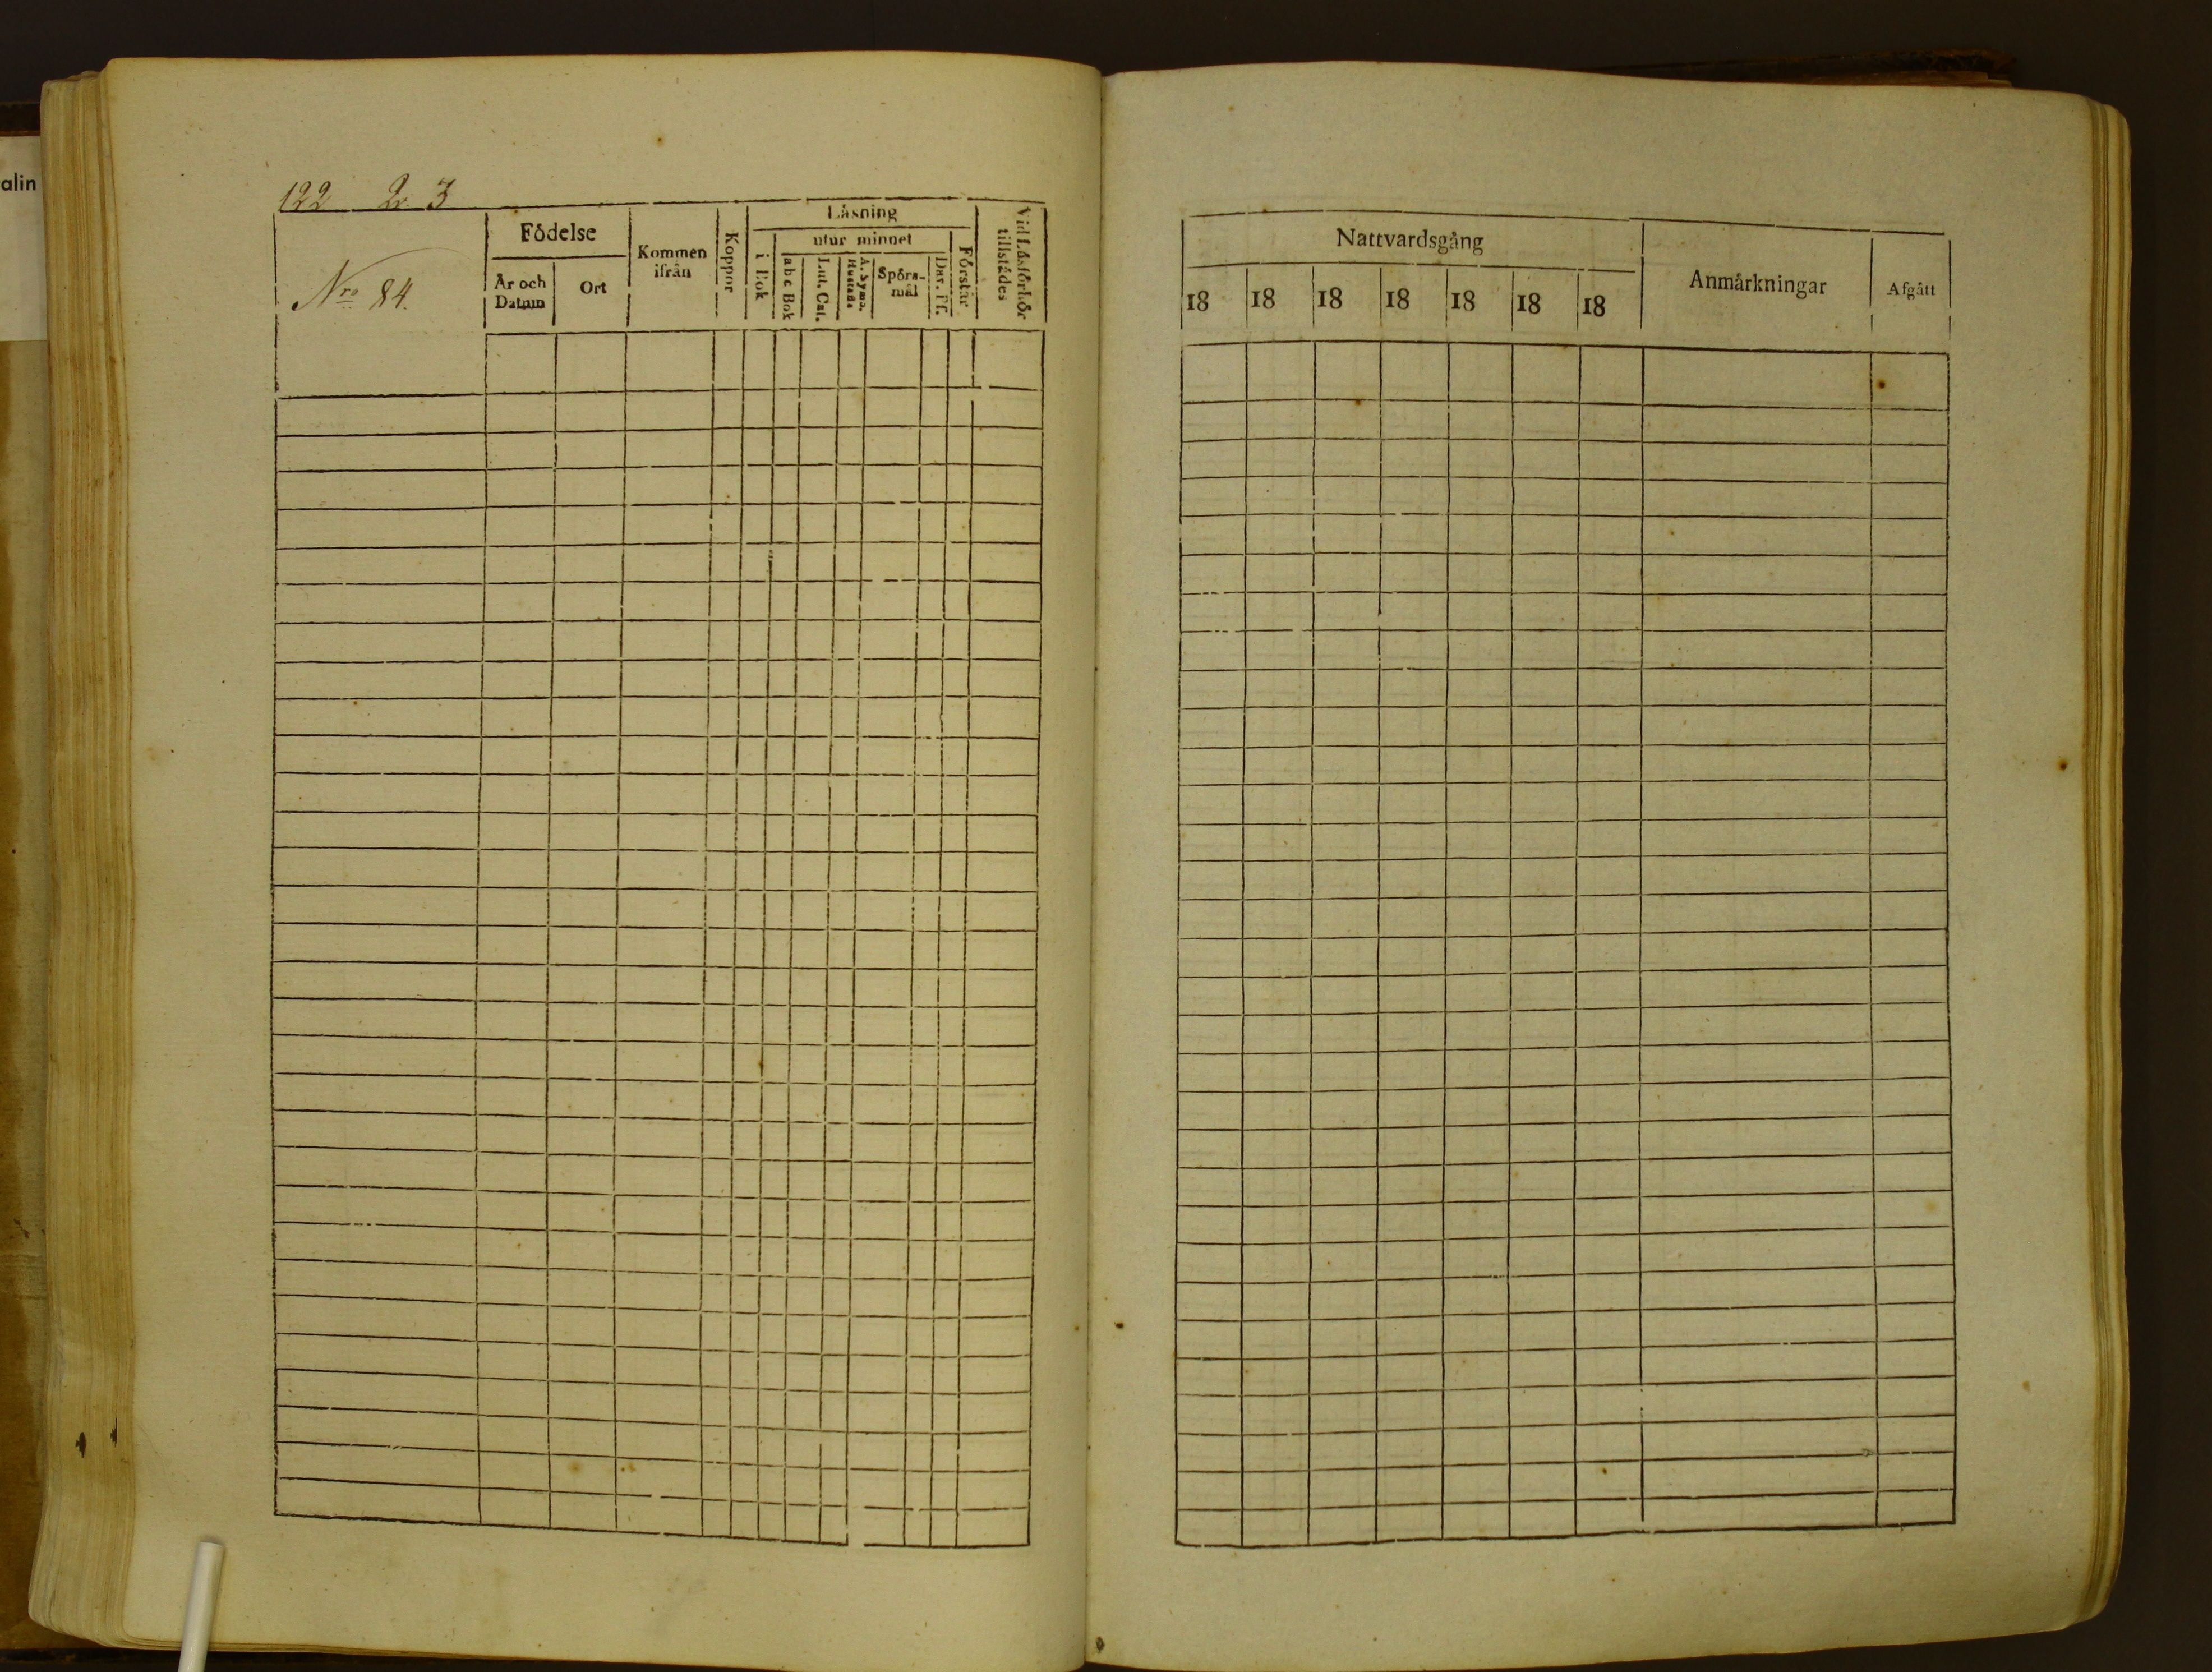 alin
122 Qv. 3
Nro 84.
Födelse
År och
Datum
Ort
Kommen
ifrån
Koppor
Läsning
i Bok
utur minnet
a b c Bok
Lut. Cat.
A. Symb.
Hustafla
Spörs-
mål
Dav. Ps.
Förstår
Vid Läsförhör
tillstädes
Nattvardsgång
18 18 18 18 18 18 18
Anmärkningar
Afgått